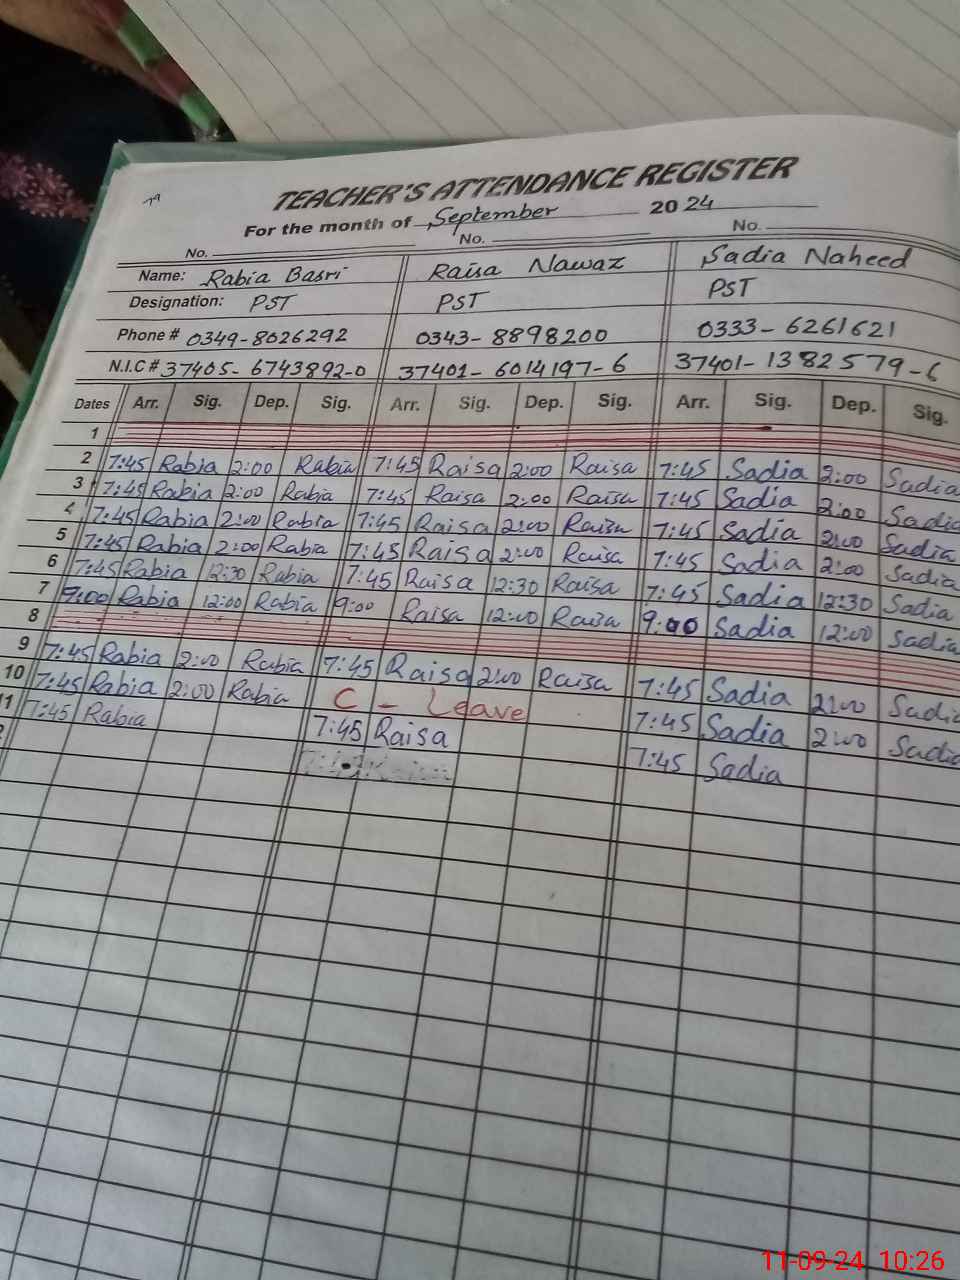 TEACHER'S ATTENDANCE REGISTER
For the month of September 2024
No. No. No.
Name: Rabia Basri Raisa Nawaz Sadia Naheed
Designation: PST PST PST
Phone # 0349-8026292 0343-8898200 0333-6261621
N.I.C # 37405-6743892-0 37401-6014197-6 37401-1382579-6
Dates Arr. Sig. Dep. Sig. Arr. Sig. Dep. Sig. Arr. Sig. Dep. Sig.
1
2 7:45 Rabia 2:00 Rabia 7:45 Raisa 2:00 Raisa 7:45 Sadia 2:00 Sadia
3 7:45 Rabia 2:00 Rabia 7:45 Raisa 2:00 Raisa 7:45 Sadia 2:00 Sadia
4 7:45 Rabia 2:00 Rabia 7:45 Raisa 2:00 Raisa 7:45 Sadia 2:00 Sadia
5 7:45 Rabia 2:00 Rabia 7:45 Raisa 2:00 Raisa 7:45 Sadia 2:00 Sadia
6 7:45 Rabia 12:30 Rabia 7:45 Raisa 12:30 Raisa 7:45 Sadia 12:30 Sadia
7 9:00 Rabia 12:00 Rabia 9:00 Raisa 12:00 Raisa 9:00 Sadia 12:00 Sadia
8
9 7:45 Rabia 2:00 Rabia 7:45 Raisa 2:00 Raisa 7:45 Sadia 2:00 Sadia
10 7:45 Rabia 2:00 Rabia C - Leave 7:45 Sadia 2:00 Sadia
11 7:45 Rabia 7:45 Raisa 7:45 Sadia
11-09-24 10:26